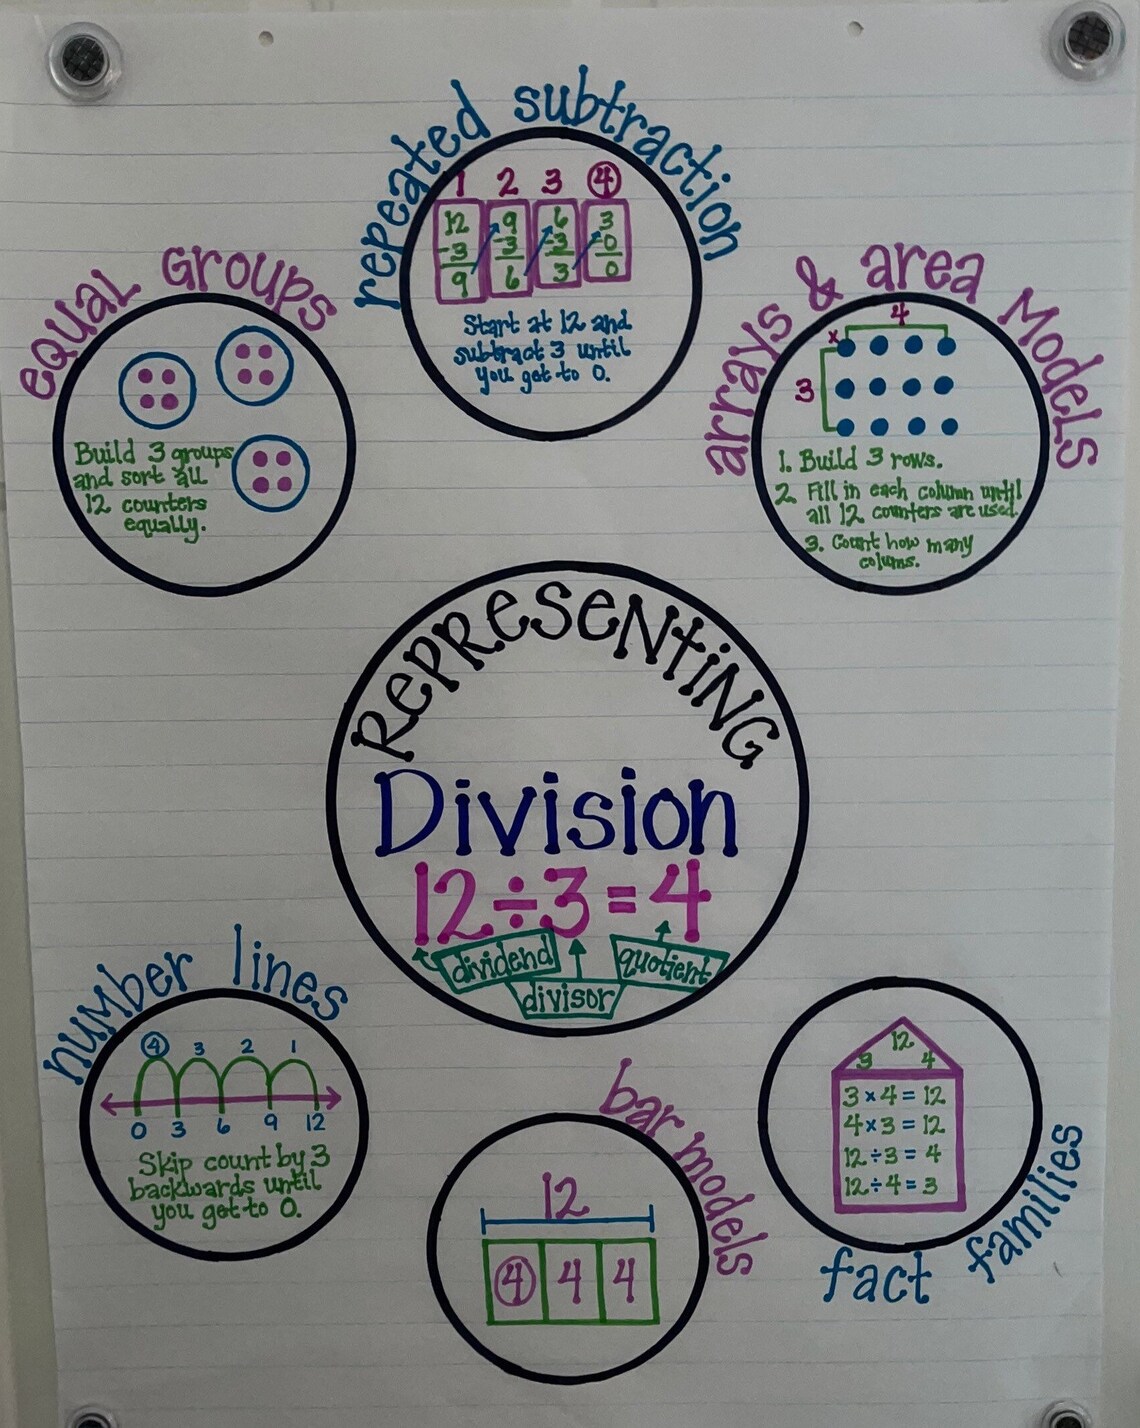 repeated subtraction
1 2 3 4
12 9 6 3
-3 -3 -3 -0
9 6 3 0
Start at 12 and
subtract 3 until
you get to 0.
equal Groups
Build 3 groups
and sort all
12 counters
equally.
arrays & area Models
4
x
3
1. Build 3 rows.
2. Fill in each column until
all 12 counters are used.
3. Count how many
colums.
RePReSeNtiNG
Division
12÷3=4
dividend
divisor
quotient
number lines
4 3 2 1
0 3 6 9 12
Skip count by 3
backwards until
you get to 0.
bar models
12
4 4 4
12
3 4
3×4=12
4×3=12
12÷3=4
12÷4=3
fact families